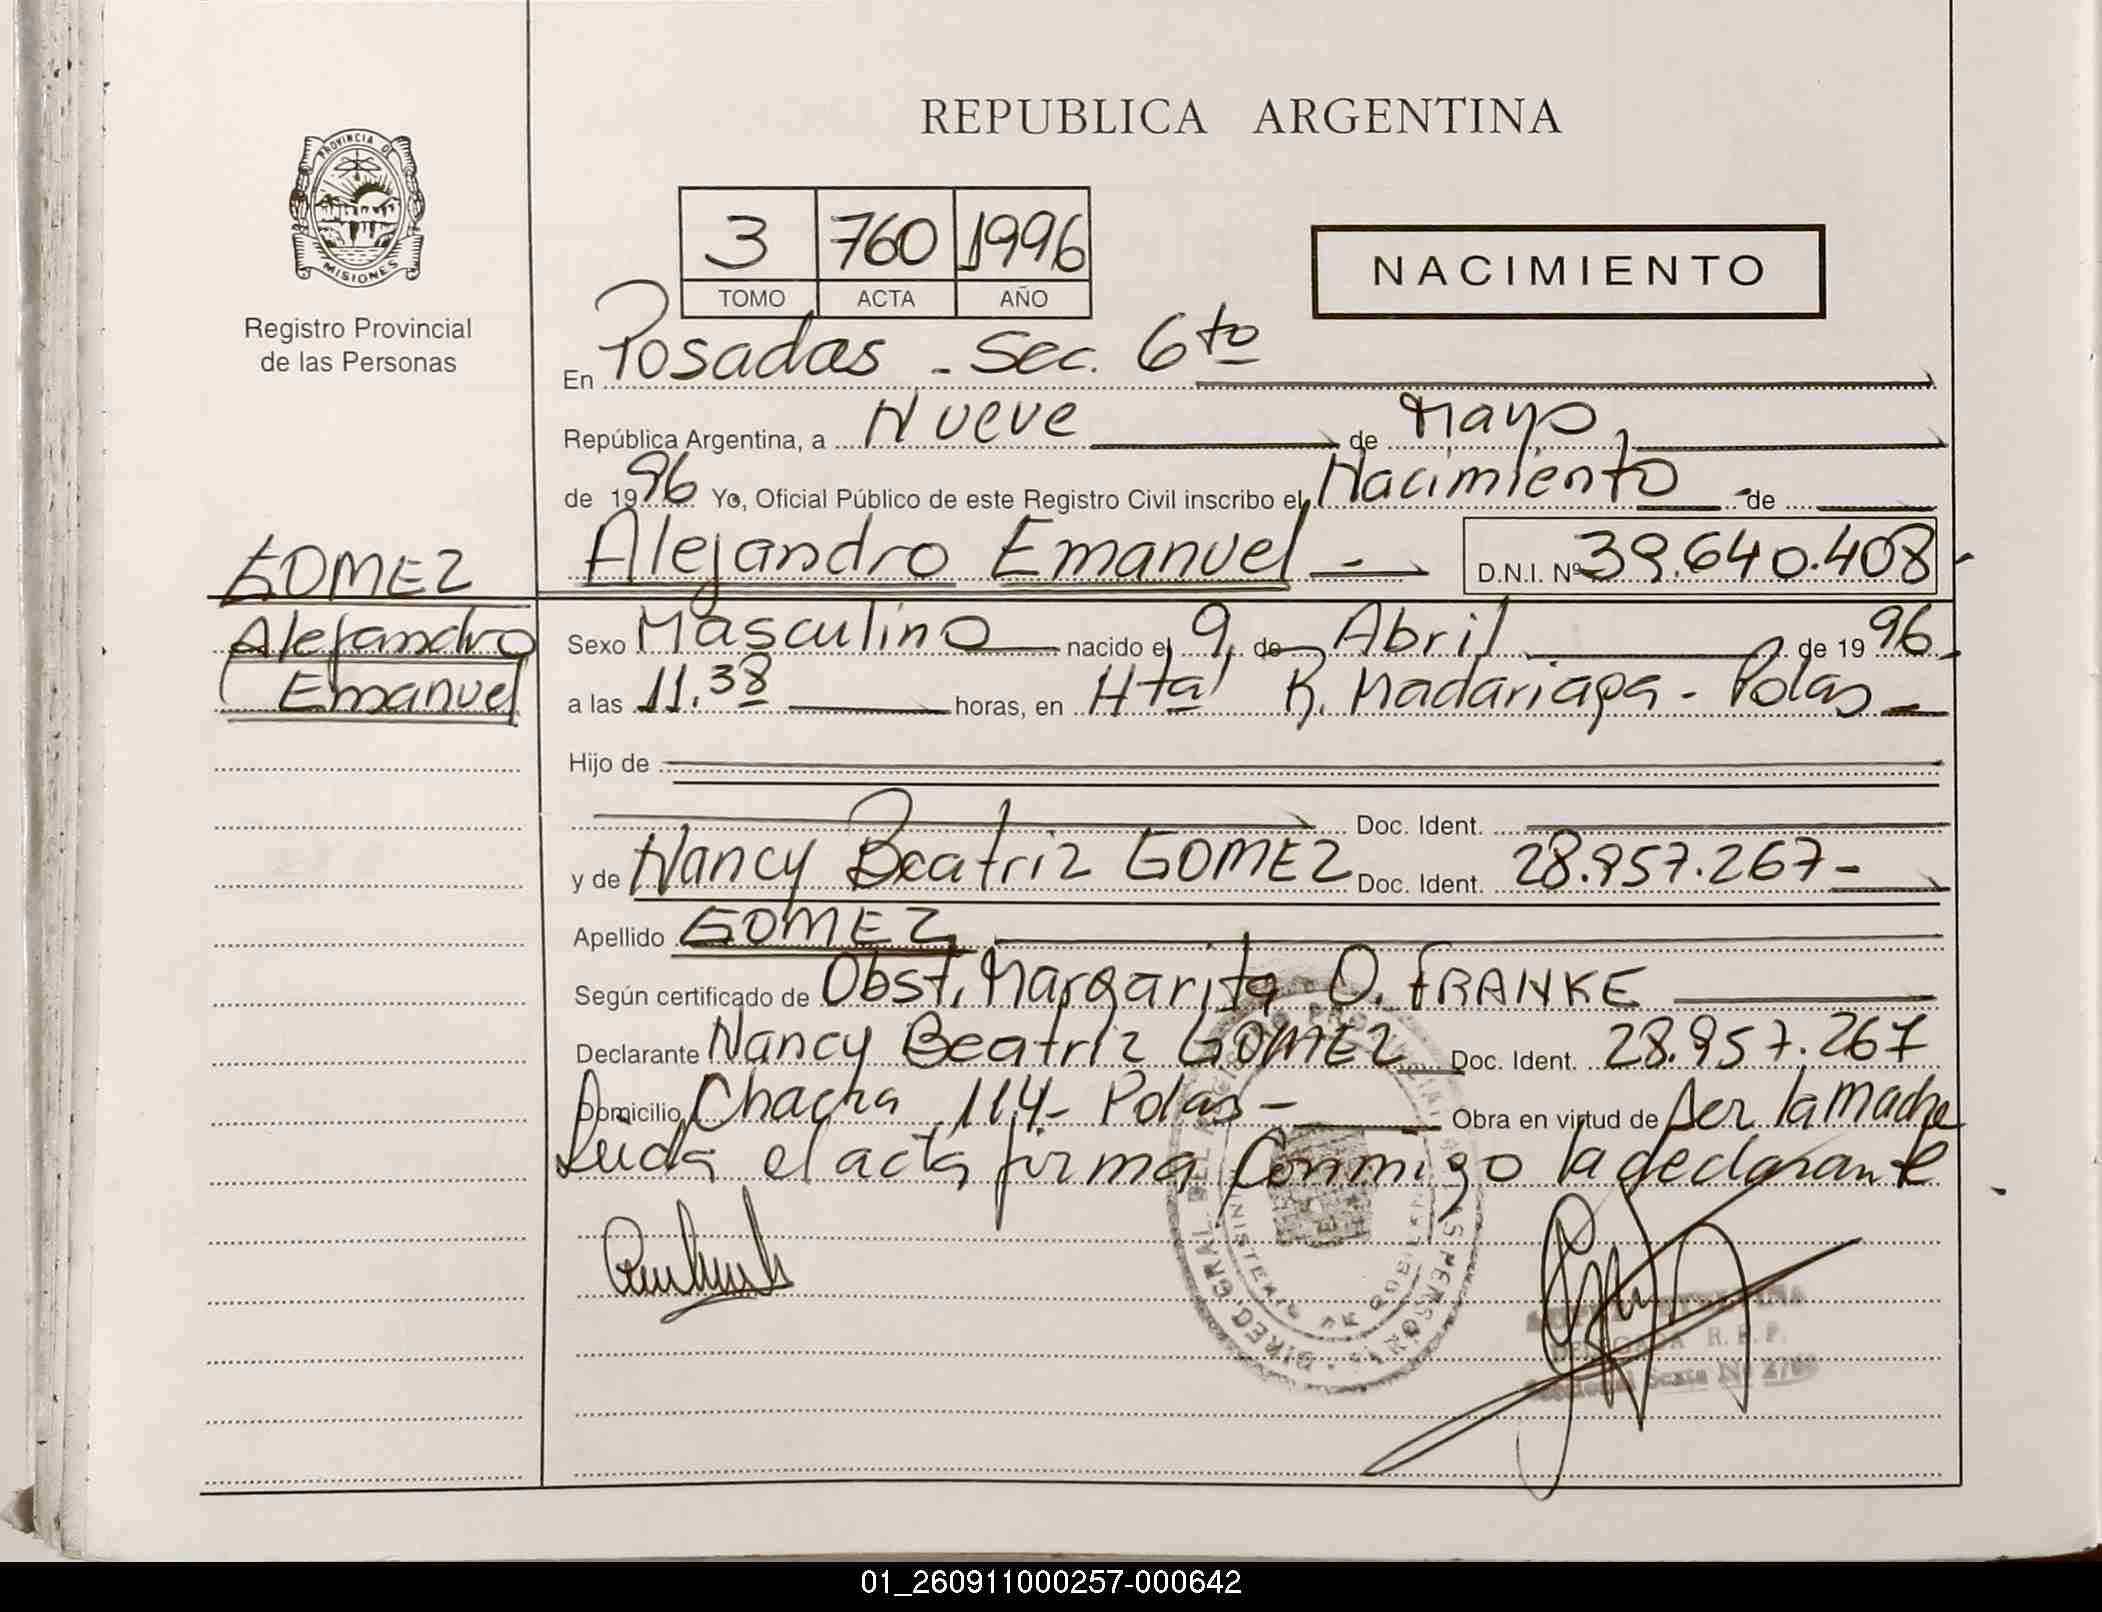 REPUBLICA ARGENTINA
PROVINCIA DE
MISIONES
Registro Provincial
de las Personas
3 760 1996
TOMO ACTA AÑO
NACIMIENTO
En Posadas - Sec. 6to
República Argentina, a Nueve de Mayo
de 1996 Yo, Oficial Público de este Registro Civil inscribo el Nacimiento de
Alejandro Emanuel - D.N.I. Nº 39.640.408
GOMEZ
Alejandro
Emanuel
Sexo Masculino nacido el 9 de Abril de 1996
a las 11.38 horas, en Htal R. Madariaga - Pdas
Hijo de
Doc. Ident.
y de Nancy Beatriz GOMEZ Doc. Ident. 28.957.267-
Apellido GOMEZ
Según certificado de Obst. Margarita O. FRANKE
Declarante Nancy Beatriz GOMEZ Doc. Ident. 28.957.267
Domicilio Chacra 114- Pdas- Obra en virtud de ser la madre
Leida el acta firma conmigo la declarante
DIREC. GRAL DEL PROVINCIAL PERSONAS
MINISTERIO DE GOBIERNO
R. P. P.
Seccional Sexta Nº
01_260911000257-000642